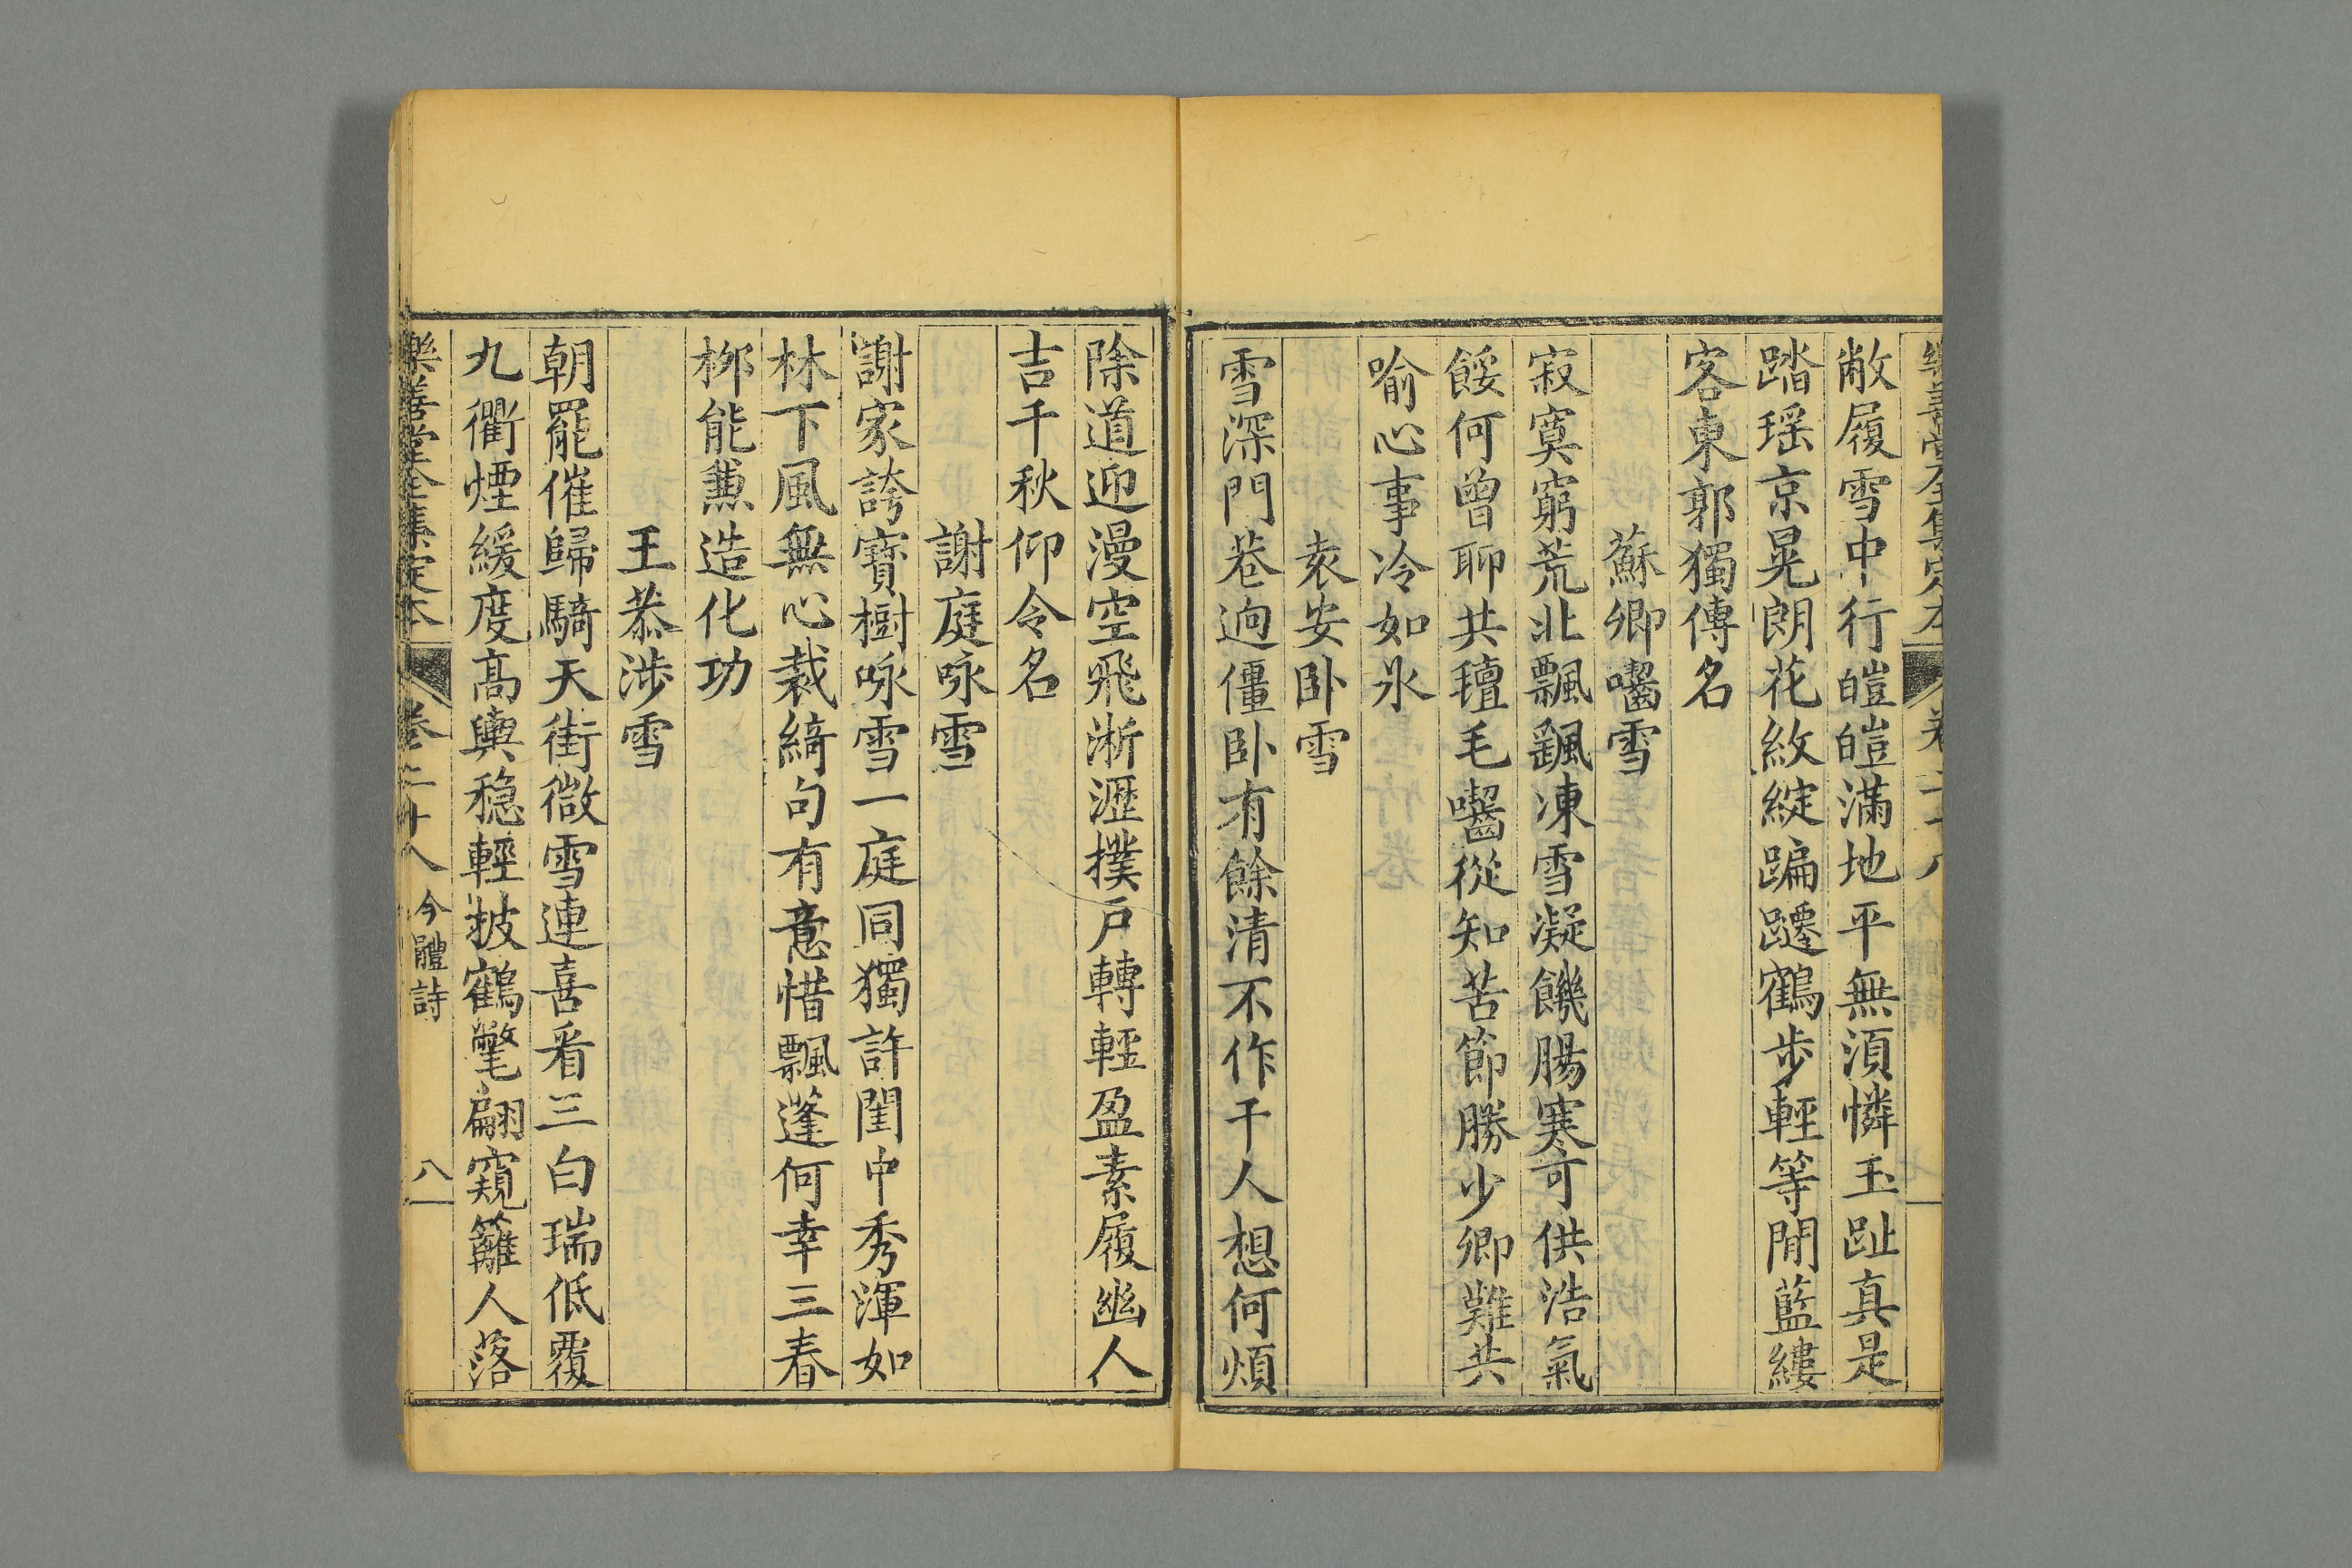 敝履雪中行皚皚滿地平無湏憐玉趾真是
踏瑶京晃朗花紋綻蹁躚鶴步輕等閒藍縷
客東郭獨傳名
蘇卿囓雪
寂寞窮荒北飄飖凍雪凝饑腸寒可供浩氣
餒何曾聊共氊毛囓從知苦節勝少卿難共
喻心事冷如氷
袁安卧雪
雪深門巷逈僵卧有餘清不作干人想何煩
除道迎漫空飛淅瀝撲戸轉輕盈素履幽人
吉千秋仰令名
謝庭咏雪
謝家誇寳樹咏雪一庭同獨許閨中秀渾如
林下風無心裁綺句有意惜飄蓬何幸三春
栁能兼造化功
王恭涉雪
朝罷催歸騎天街微雪連喜看三白瑞低覆
九衢煙緩度髙輿穏輕披鶴氅翩窺籬人落
樂善堂全集定本 卷二十八 今體詩 八